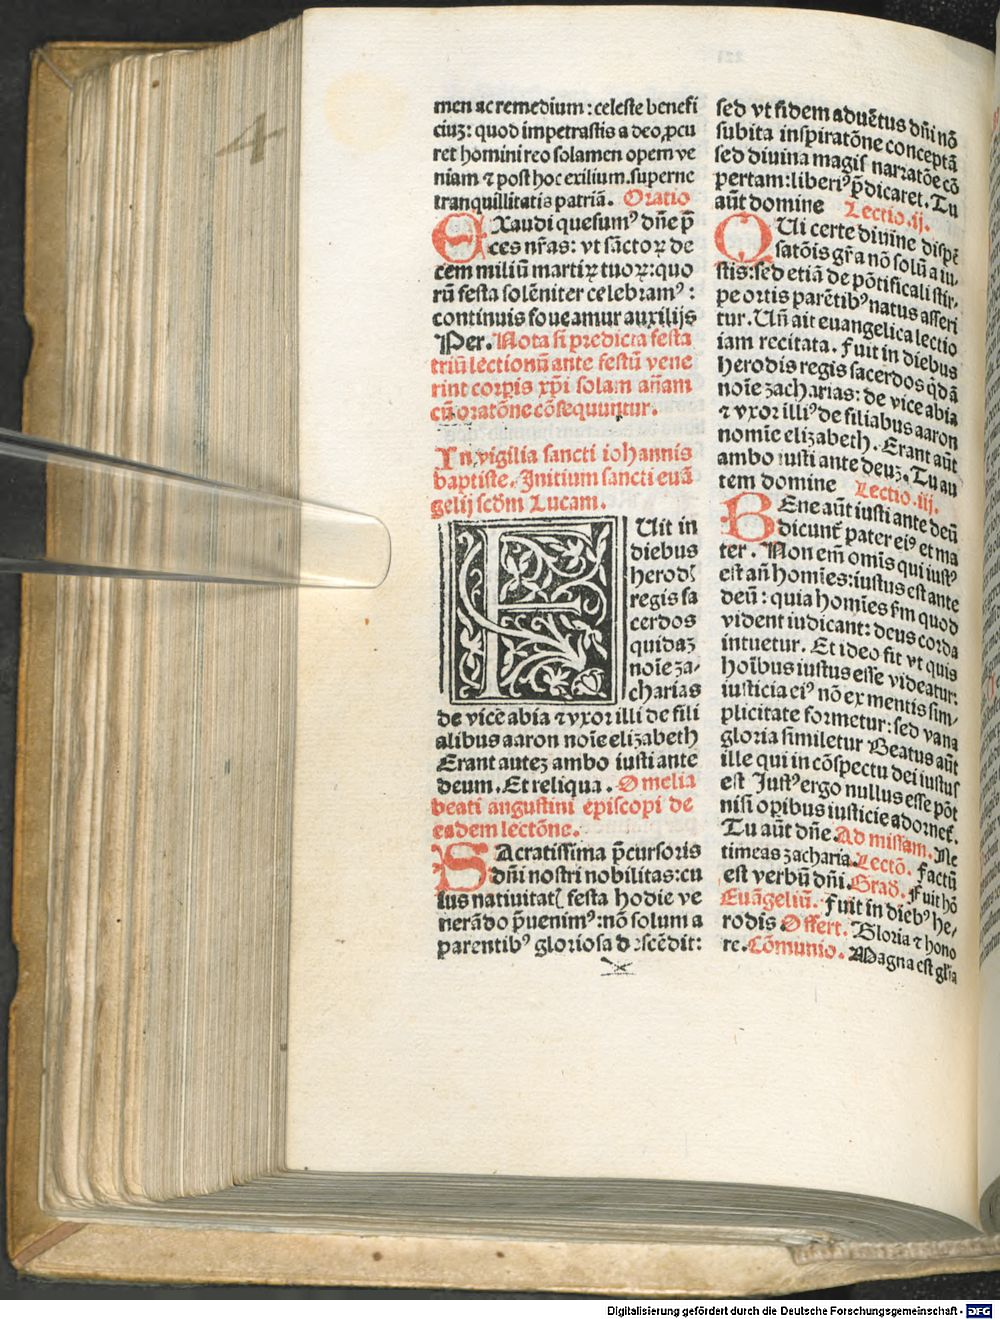 men ac remedium : celeste benefi
ciuʒ: quod impetrastis a deo, ꝓcu
ret homini reo solamen opem ve
niam ⁊ post hoc exilium. superne
tranquillitatis patriā. Oratio
EXaudi quesumꝰ dn̄e p̄
ces nr̄as: vt sāctoꝝ de
cem miliū martiꝝ tuoꝝ: quo
rū festa solēniter celebramꝰ :
continuis foueamur auxilijs
Per. Nota si predicta festa
triū lectionū ante festū vene
rint corꝑis xp̄i solam an̄am
cū oratōne cōsequuntur.
In vigilia sancti iohannis
baptiste. Initium sancti euā
gelij scd̄m Lucam.
FUit in
diebus
herodꝭ
regis sa
cerdos
quidaʒ
noīe za-
charias
de vice abia ⁊ vxor illi de fili
alibus aaron noīe elizabeth
Erant auteʒ ambo iusti ante
deum. Et reliqua. Omelia
beati augustini episcopi de
eadem lectōne.
SAcratissima p̄cursoris
dn̄i nostri nobilitas: cu
ius natiuitatꝭ festa hodie ve
nerādo p̄uenimꝰ: nō solum a
parentibꝰ gloriosa descēdit:
sed vt fidem aduētus dn̄i nō
subita inspiratōne conceptā
sed diuina magis narratōe cō
pertam: liberiꝰ p̄dicaret. Tu
aūt domine Lectio. ij.
QUi certe diuine dispē
satōis gr̄a nō solū a iu-
stis: sed etiā de pōtificali stir-
pe ortis parētibꝰ natus asseri
tur. Un̄ ait euangelica lectio
iam recitata. Fuit in diebus
herodis regis sacerdos q̄dā
noīe zacharias: de vice abia
⁊ vxor illiꝰ de filiabus aaron
nomīe elizabeth. Erant aūt
ambo iusti ante deuʒ. Tu au
tem domine Lectio. iij.
BEne aūt iusti ante deū
dicunt̄ pater eiꝰ et ma
ter. Non em̄ omīs qui iustꝰ
est an̄ homīes: iustus est ante
deū: quia homīes s̄m quod
vident iudicant: deus corda
intuetur. Et ideo fit vt quis
hoībus iustus esse videatur:
iusticia eiꝰ nō ex mentis sim-
plicitate formetur: sed vana
gloria similetur Beatus aūt
ille qui in cōspectu dei iustus
est Justꝰ ergo nullus esse pōt
nisi oꝑibus iusticie adornet̄.
Tu aūt dn̄e. Ad missam. Ne
timeas zacharia. Lectō. Factū
est verbū dn̄i. Grad̄. Fuit hō
Euāgeliū. Fuit in diebꝰ he-
rodis Offert. Gloria ⁊ hono
re. Cōmunio. Magna est gl̄ia
4
Digitalisierung gefördert durch die Deutsche Forschungsgemeinschaft - DFG